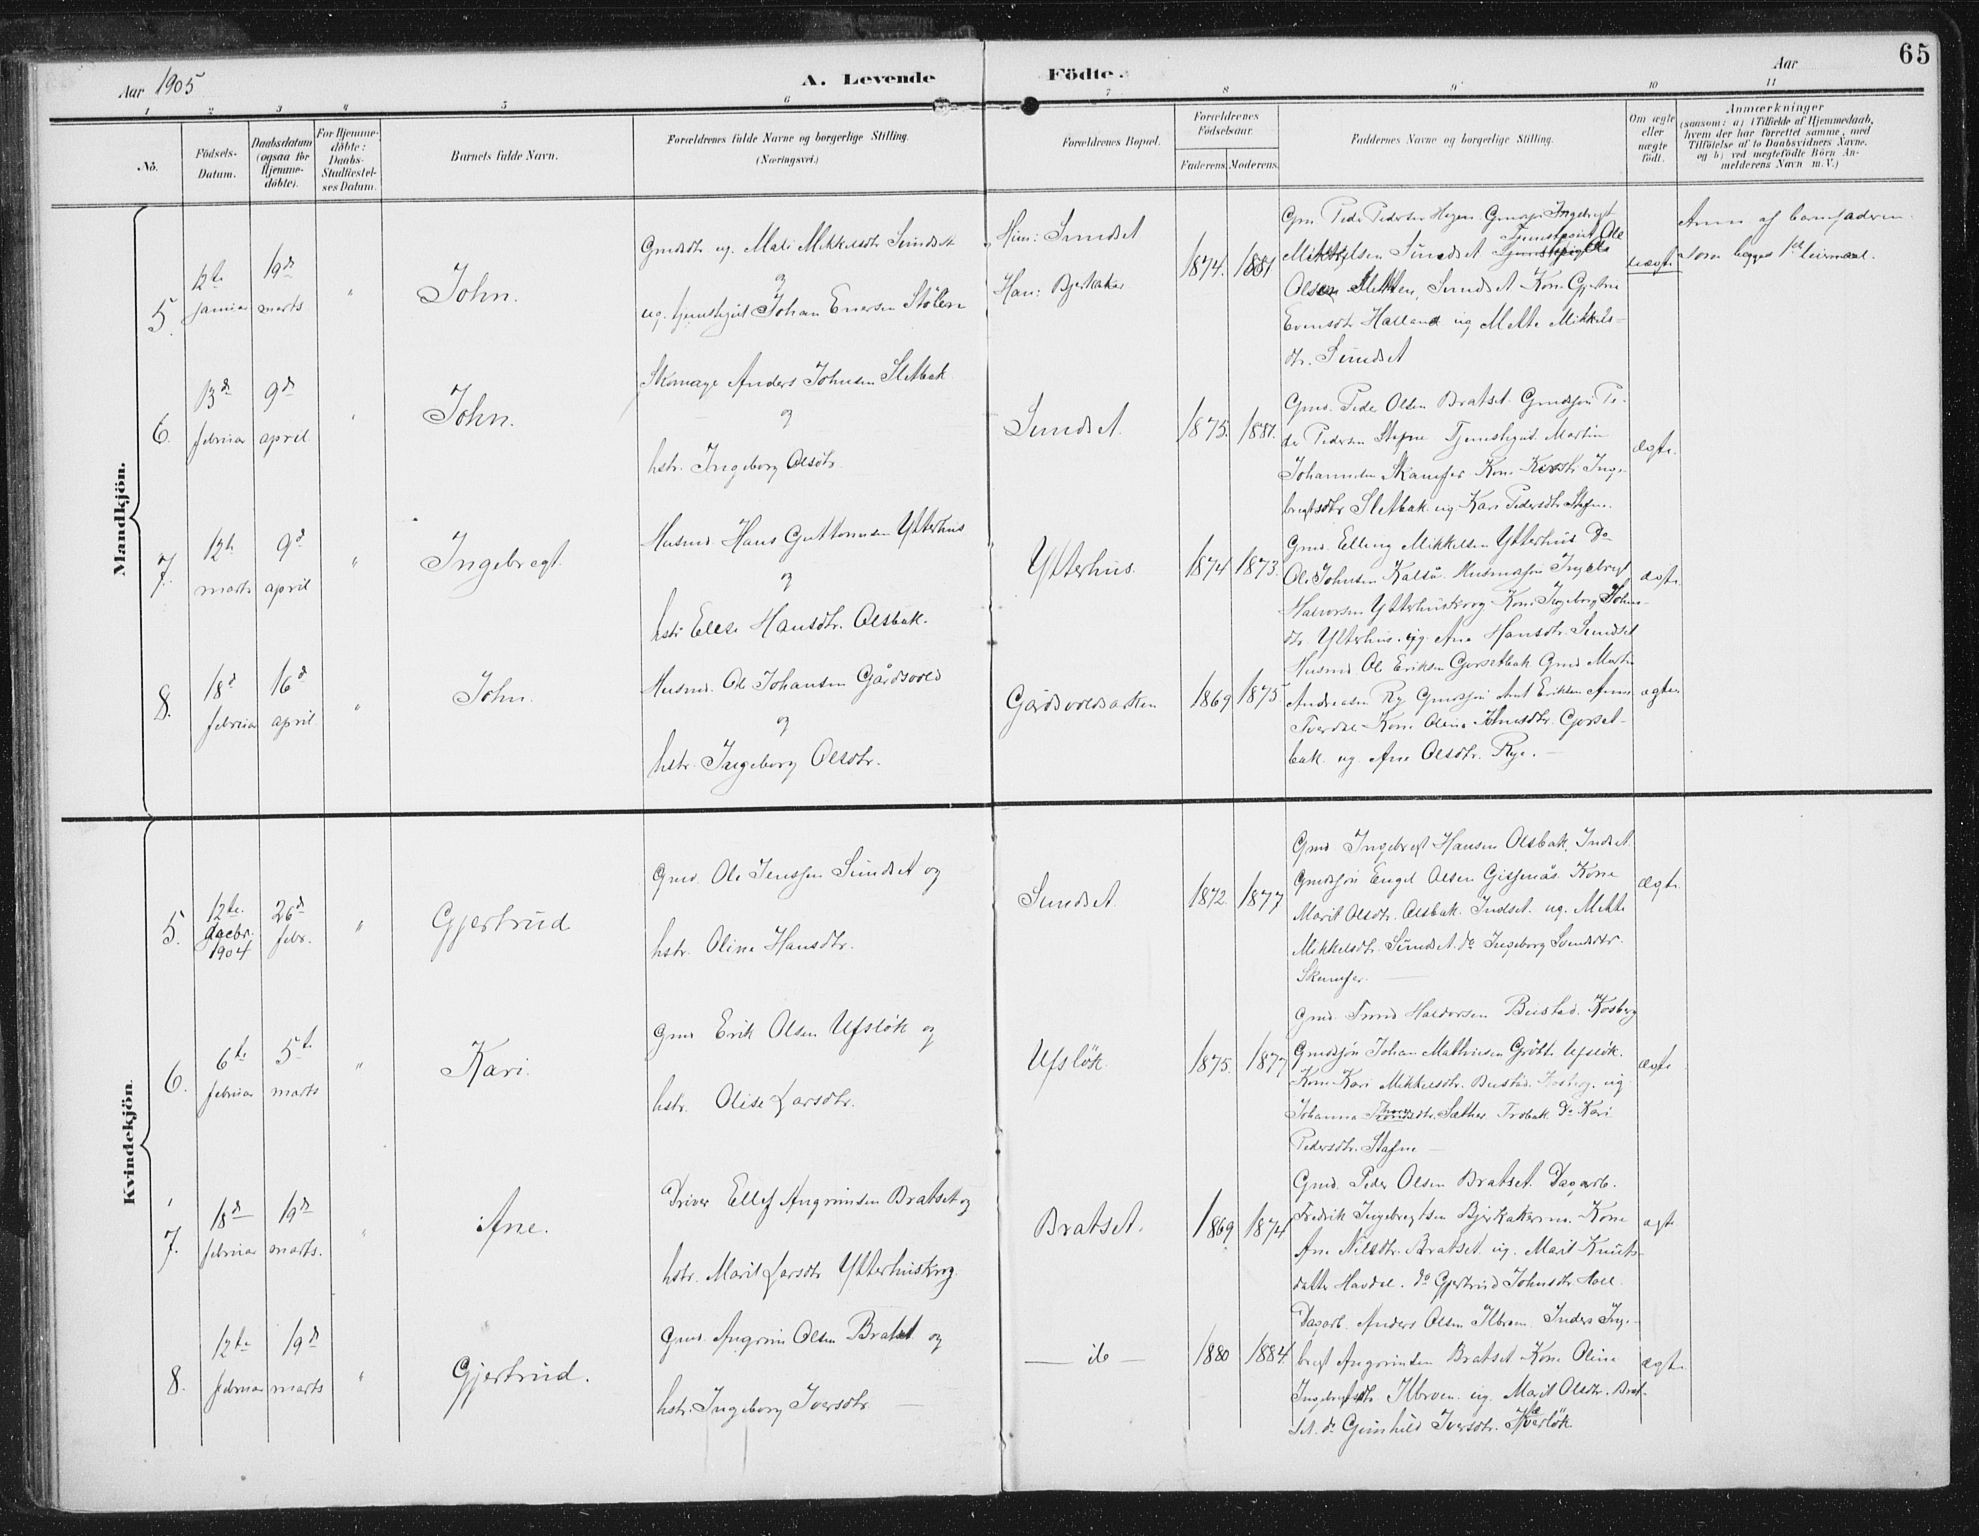 65
Aar 1905
A. Levende
Födte.
Aar
1 2 3 4 5 6 7 8 9 10 11
No.
Födsels-
Datum.
Daabsdatum
(ogsaa for
Hjemme-
döbte).
For Hjemme-
döbte:
Daabs-
Stadfæstel-
ses Datum.
Barnets fulde Navn.
Forældrenes fulde Navne og borgerlige Stilling.
(Næringsvei.)
Forældrenes Bopæl.
Forældrenes
Födselsaar.
Faderens. Moderens.
Faddernes Navne og borgerlige Stilling.
Om ægte
eller
uægte
födt.
Anmærkninger
(saasom: a) i Tilfælde af Hjemmedaab,
hvem der har forrettet samme, med
Tilföielse af to Daabsvidners Navne.
og b) ved uegtefödte Börn An-
melderens Navn m. V.)
Mandkjön.
5.
12te
januar
19de
marts
"
John.
Gmdsdtr ug. Mali Mikkelsdtr Sundset
og
ug. tjenstegut Johan Enersen Stölen
Hun: Sundset
Han: Bjerkaker
1874. 1881
Gm. Peder Pedersen Gmdssön Ingebrigt
Mikkelsen Sundset Tjenstgut Ole
Olsen Sletten, Sundset Kone Gjertine
Evensdtr Halland ug. Mette Mikkels-
dtr. Sundset
uægte
Anm af barnefaderen.
6.
13de
februar
9de
april
"
John.
Skomager Anders Johnsen Sletbak
og
hstr. Ingeborg Olsdtr.
Sundset.
1875. 1881.
Gmd. Peder Olsen Bratset. Gmdssön Pe-
der Pedersen Stefne Tjenstegut Martin
Johannesen Skamfer Kone Kirsti Inge-
brigtsdtr Sletbak ug Kari Pedersdtr Stefne.
ægte.
7.
12te
marts
9de
april
"
Ingebregt.
Husmd. Hans Guttormsen Ytterhus
og
hstr Elise Hansdtr. Olsbak.
Ytterhus.
1874 1873.
Gmd. Elling Mikkelsen Ytterhus Do
Ole Johnsen Husmdssön Ingebrigt
Halvorsen Ytterhuskrog Kone Ingeborg Johns-
dtr. Ytterhus. ug. Ane Hansdtr. Sundset
ægte.
8.
18de
februar
16de
april
"
John.
Husmd. Ole Johansen Gårdsvold
og
hstr. Ingeborg Olsdtr.
Gårdsvoldsbakken
1869 1875
Husmd Ole Eriksen Gorsetbak Gmd Martin
Andreasen Ry Gmdssön Arnt Eriksen
Kone Oline Johnsdtr. Gorset-
bak ug. Ane Olsdtr. Rye. —
ægte
Kvindekjön.
5.
12te
decbr.
1904
26de
febr.
"
Gjertrud
Gmd. Ole Jenssen Sundset og
hstr. Oline Hansdtr.
Sundset.
1872. 1877
Gmd. Ingebregt Hansen Olsbak, Indset
Gmdssön Engel Olsen Gisjenås. Kone
Marit Olsdtr. Olsbak. Indset. ug. Mette
Mikkelsdtr. Sundset. do Ingeborg Svendsdtr.
Skamfer. —
ægte
6.
6te
februar
5te
marts
"
Kari.
Gmd Erik Olsen Ufslök og
hstr. Olise Larsdtr.
Ufslök.
1875. 1877
Gmd. Trond Haldorsen Bustad. Kosberg
Gmdssön Johan Mathiesen Grötte Ufslök.
Kone Kari Mikkelsdtr. Bustad. Kosberg. ug
Johanna Sæther Trobak Do Kari
Pedersdtr. Stafne —
ægte
7.
18de
februar
19de
marts.
"
Ane.
Driver Ellef Angrimsen Bratset og
hstr. Marit Larsdtr Ytterhuskrog.
Bratset.
1869 1874
Gmd. Peder Olsen Bratset. Dagarb.
Fredrik Ingebregtsen Bjerkakermo. Kone
Ane Nilsdtr. Bratset. ug. Marit Knuts-
datter Havdal. do Gjertrud Johnsdtr. Holl.
ægte
8.
12te
februar
19de
marts
"
Gjertrud.
Gmd. Angrim Olsen Bratset og
hstr. Ingeborg Iversdtr —
— do —
1880 1884.
Dagarb. Anders Olsen Ilbroen. Inders Inge-
bregt Angrimsen Bratset Kone Oline
Ingebregtsdtr. Ilbroen. ug. Marit Olsdtr. Brat-
set. do Gunhild Iversdtr.
ægte